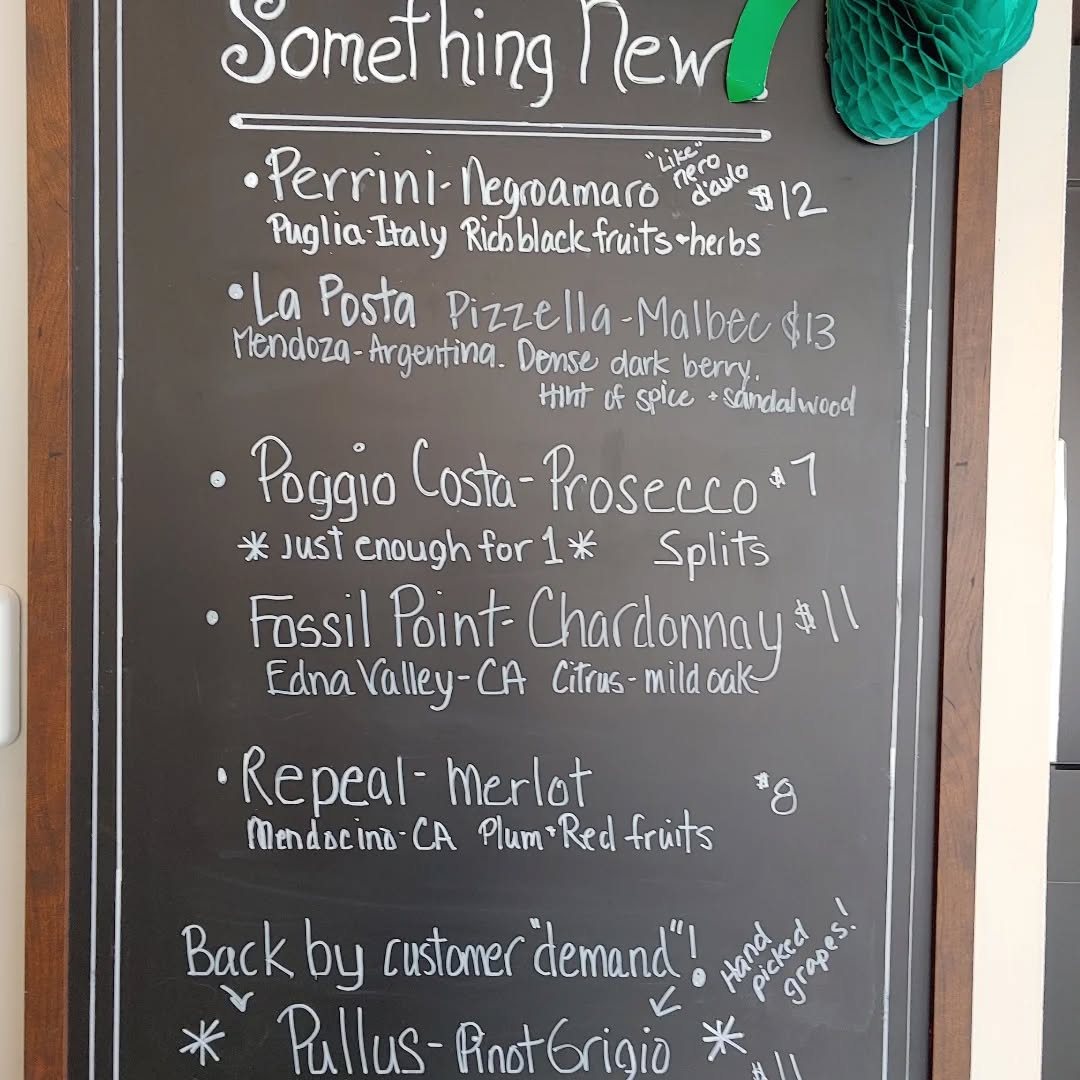 Something New
• Perrini - Negroamaro "Like" nero d'avlo $12
Puglia - Italy Rich black fruits + herbs
• La Posta Pizzella - Malbec $13
Mendoza - Argentina. Dense dark berry.
Hint of spice + sandalwood
• Poggio Costa - Prosecco $7
* Just enough for 1 * Splits
• Fossil Point - Chardonnay $11
Edna Valley - CA Citrus - mild oak
• Repeal - Merlot $8
Mendocino - CA Plum + Red fruits
Back by customer "demand"! Hand picked grapes!
* Pullus - Pinot Grigio *
$11